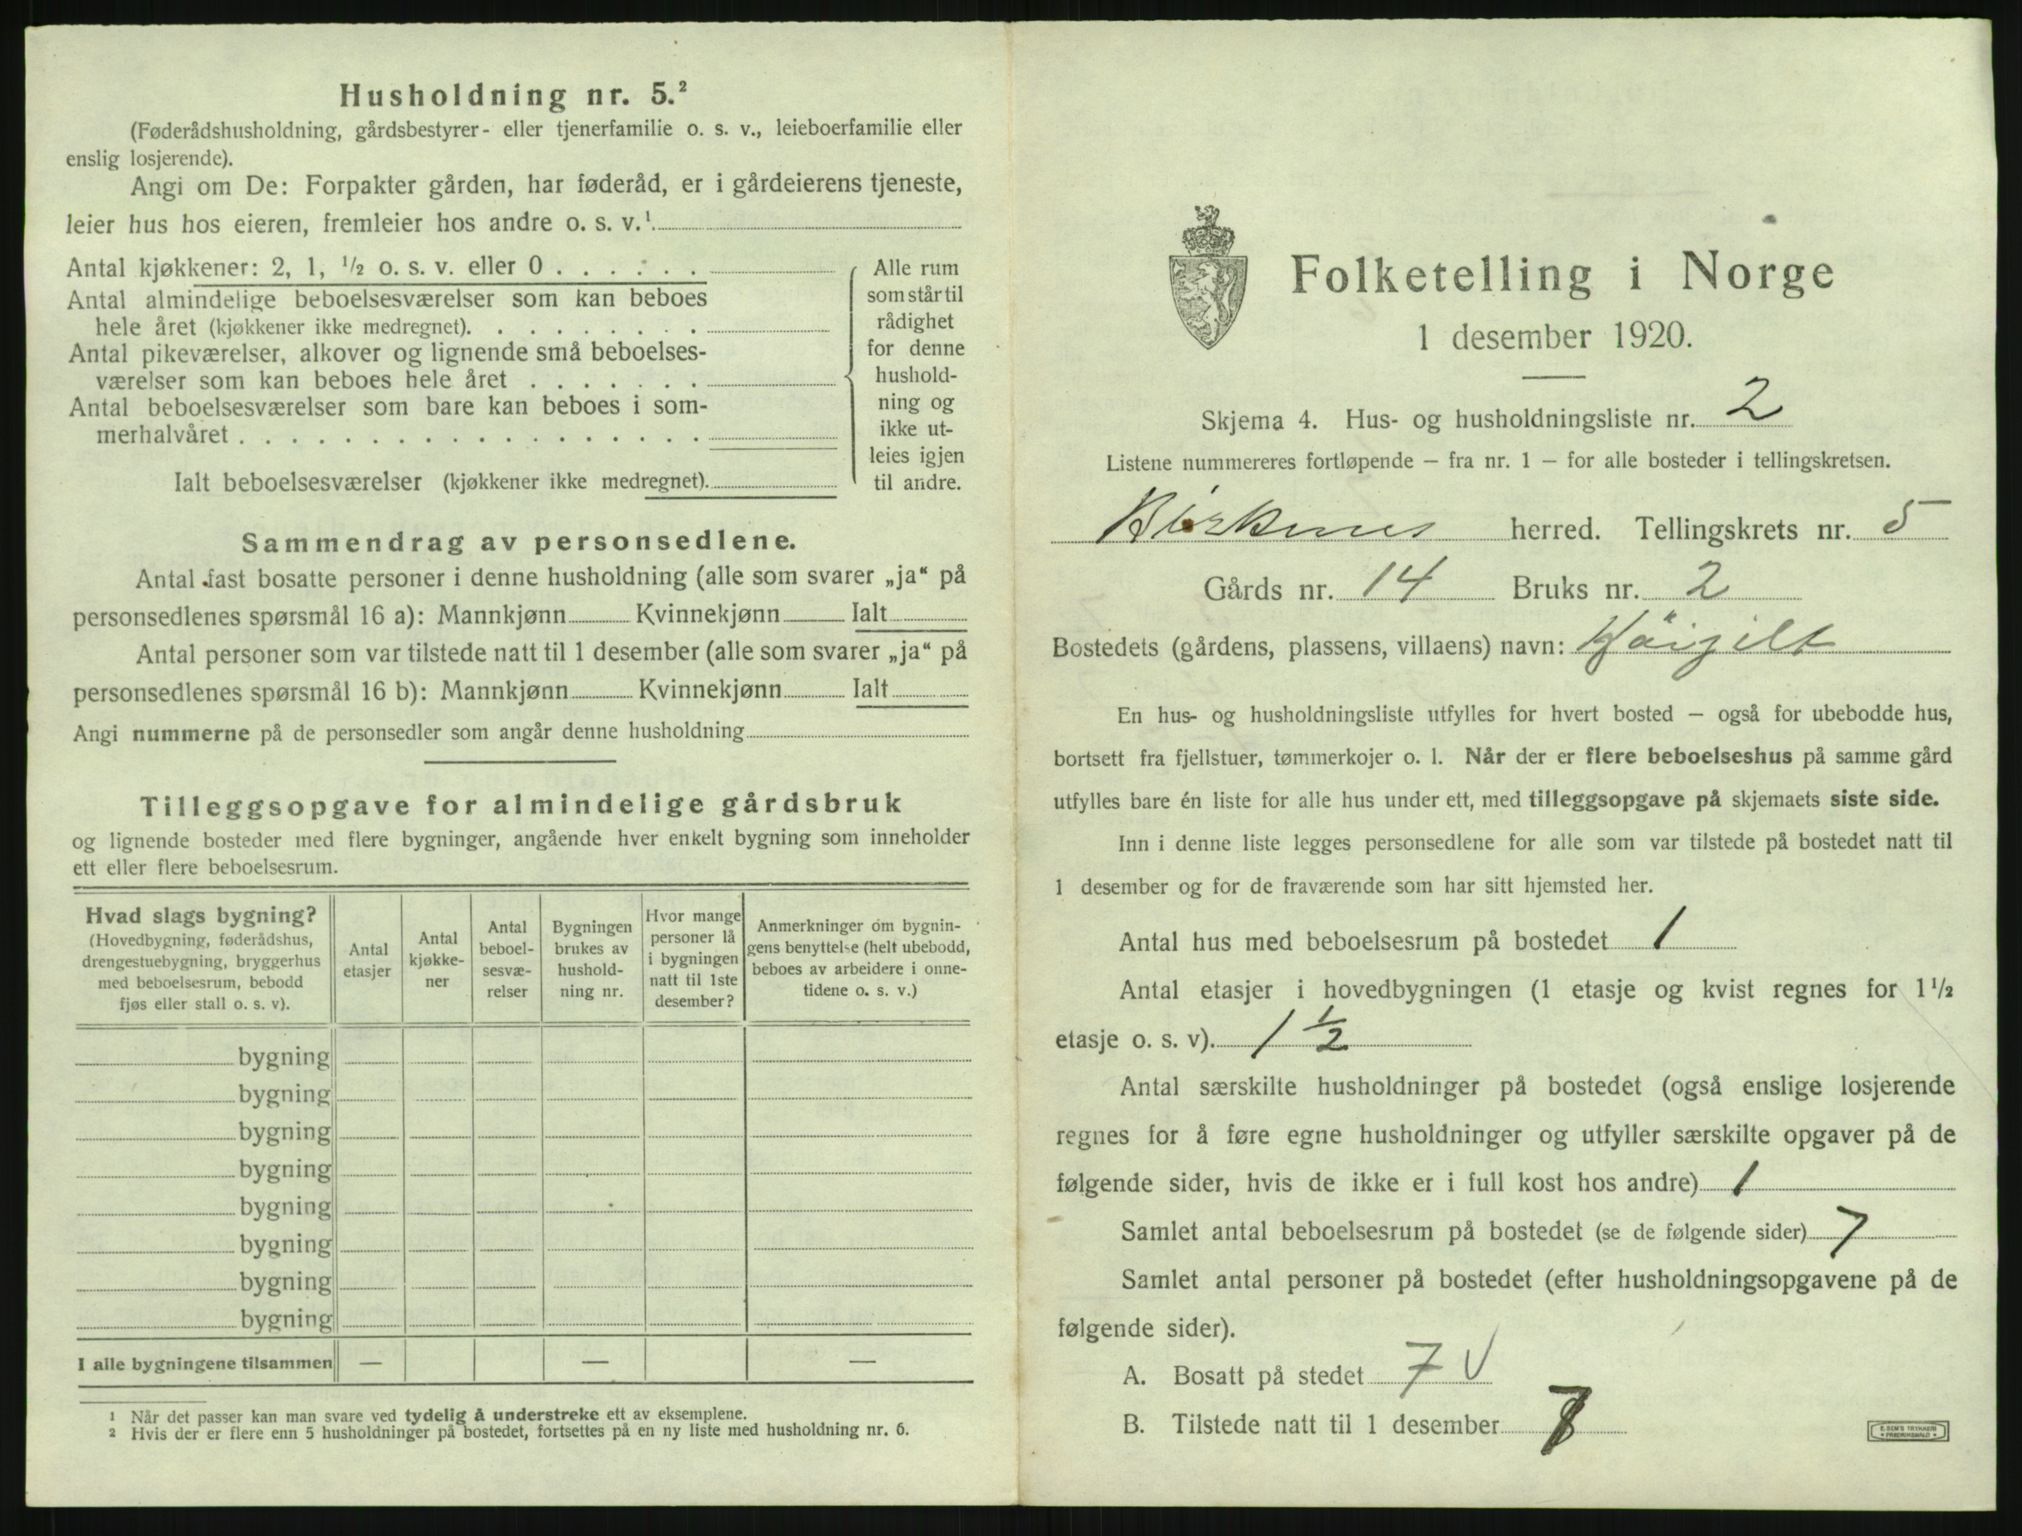 Husholdning nr. 5.²
(Føderådshusholdning, gårdsbestyrer- eller tjenerfamilie o. s. v., leieboerfamilie eller
enslig losjerende).
Angi om De: Forpakter gården, har føderåd, er i gårdeierens tjeneste,
leier hus hos eieren, fremleier hos andre o. s. v.¹
Antal kjøkkener: 2, 1, ½ o. s. v. eller 0 . . . . . .
Antal almindelige beboelsesværelser som kan beboes
hele året (kjøkkener ikke medregnet). . . . . . . . . .
Antal pikeværelser, alkover og lignende små beboelses-
værelser som kan beboes hele året . . . . . . .
Antal beboelsesværelser som bare kan beboes i som-
merhalvåret . . . . . . . . . . . . . . . . . .
Ialt beboelsesværelser (kjøkkener ikke medregnet).
Alle rum
som står til
rådighet
for denne
hushold-
ning og
ikke ut-
leies igjen
til andre.
Sammendrag av personsedlene.
Antal fast bosatte personer i denne husholdning (alle som svarer „ja“ på
personsedlenes spørsmål 16 a): Mannkjønn Kvinnekjønn Ialt
Antal personer som var tilstede natt til 1 desember (alle som svarer „ja“ på
personsedlenes spørsmål 16 b): Mannkjønn Kvinnekjønn Ialt
Angi nummerne på de personsedler som angår denne husholdning
Tilleggsopgave for almindelige gårdsbruk
og lignende bosteder med flere bygninger, angående hver enkelt bygning som inneholder
ett eller flere beboelsesrum.
Hvad slags bygning?
(Hovedbygning, føderådshus,
drengestuebygning, bryggerhus
med beboelsesrum, bebodd
fjøs eller stall o. s. v).
Antal
etasjer
Antal
kjøkke-
ner
Antal
beboel-
sesvæ-
relser
Bygningen
brukes av
hushold-
ning nr.
Hvor mange
personer lå
i bygningen
natt til 1ste
desember?
Anmerkninger om bygnin-
gens benyttelse (helt ubebodd,
beboes av arbeidere i onne-
tidene o. s. v.)
bygning
bygning
bygning
bygning
bygning
bygning
bygning
bygning
I alle bygningene tilsammen — — —
¹ Når det passer kan man svare ved tydelig å understreke ett av eksemplene.
² Hvis der er flere enn 5 husholdninger på bostedet, fortsettes på en ny liste med husholdning nr. 6.
Folketelling i Norge
1 desember 1920.
Skjema 4. Hus- og husholdningsliste nr. 2
Listene nummereres fortløpende – fra nr. 1 – for alle bosteder i tellingskretsen.
Birkenes herred. Tellingskrets nr. 5
Gårds nr. 14 Bruks nr. 2
Bostedets (gårdens, plassens, villaens) navn:
En hus- og husholdningsliste utfylles for hvert bosted – også for ubebodde hus,
bortsett fra fjellstuer, tømmerkojer o. l. Når der er flere beboelseshus på samme gård
utfylles bare én liste for alle hus under ett, med tilleggsopgave på skjemaets siste side.
Inn i denne liste legges personsedlene for alle som var tilstede på bostedet natt til
1 desember og for de fraværende som har sitt hjemsted her.
Antal hus med beboelsesrum på bostedet 1
Antal etasjer i hovedbygningen (1 etasje og kvist regnes for 1½
etasje o. s. v). 1 ½
Antal særskilte husholdninger på bostedet (også enslige losjerende
regnes for å føre egne husholdninger og utfyller særskilte opgaver på de
følgende sider, hvis de ikke er i full kost hos andre) 1
Samlet antal beboelsesrum på bostedet (se de følgende sider) 7
Samlet antal personer på bostedet (efter husholdningsopgavene på de
følgende sider).
A. Bosatt på stedet 7 V
B. Tilstede natt til 1 desember